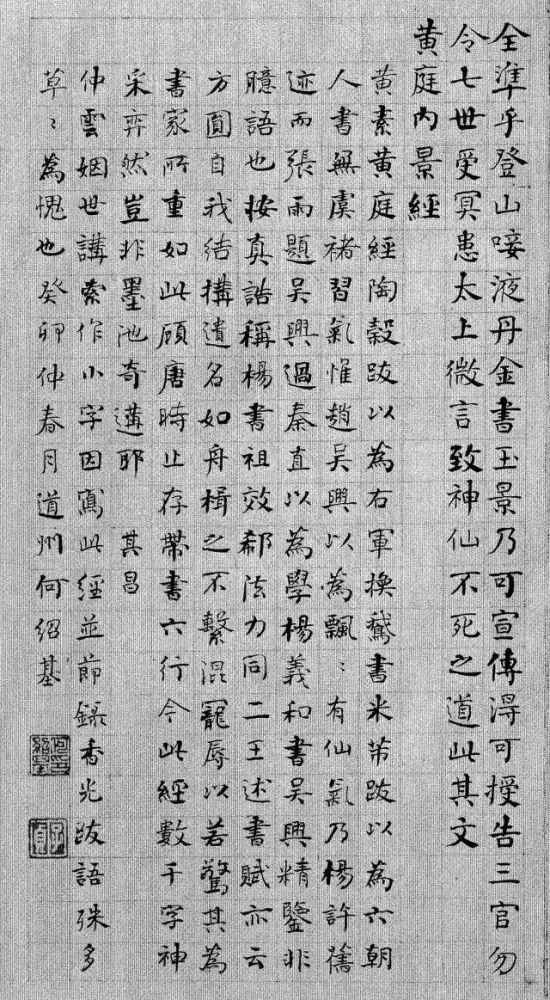 全準乎登山唼液丹金書玉景乃可宣傳得可授告三官勿
令七世受冥患太上微言致神仙不死之道此其文
黃庭內景經
黃素黃庭經陶縠跋以為右軍換鵝書米芾跋以為六朝
人書無虞褚習氣惟趙吳興以為飄〻有仙氣乃楊許舊
迹而張雨題吳興過秦直以為學楊義和書吳興精鑒非
臆語也按真誥稱楊書祖效郗法力同二王述書賦亦云
方圓自我結搆遺名如舟楫之不繫混寵辱以若驚其為
書家所重如此顧唐時止存帶書六行今此經數千字神
采弈然豈非墨池奇遘耶 其昌
仲雲姻世講索作小字因寫此經並節錄香光跋語殊多
草〻為愧也癸卯仲春月道州何紹基